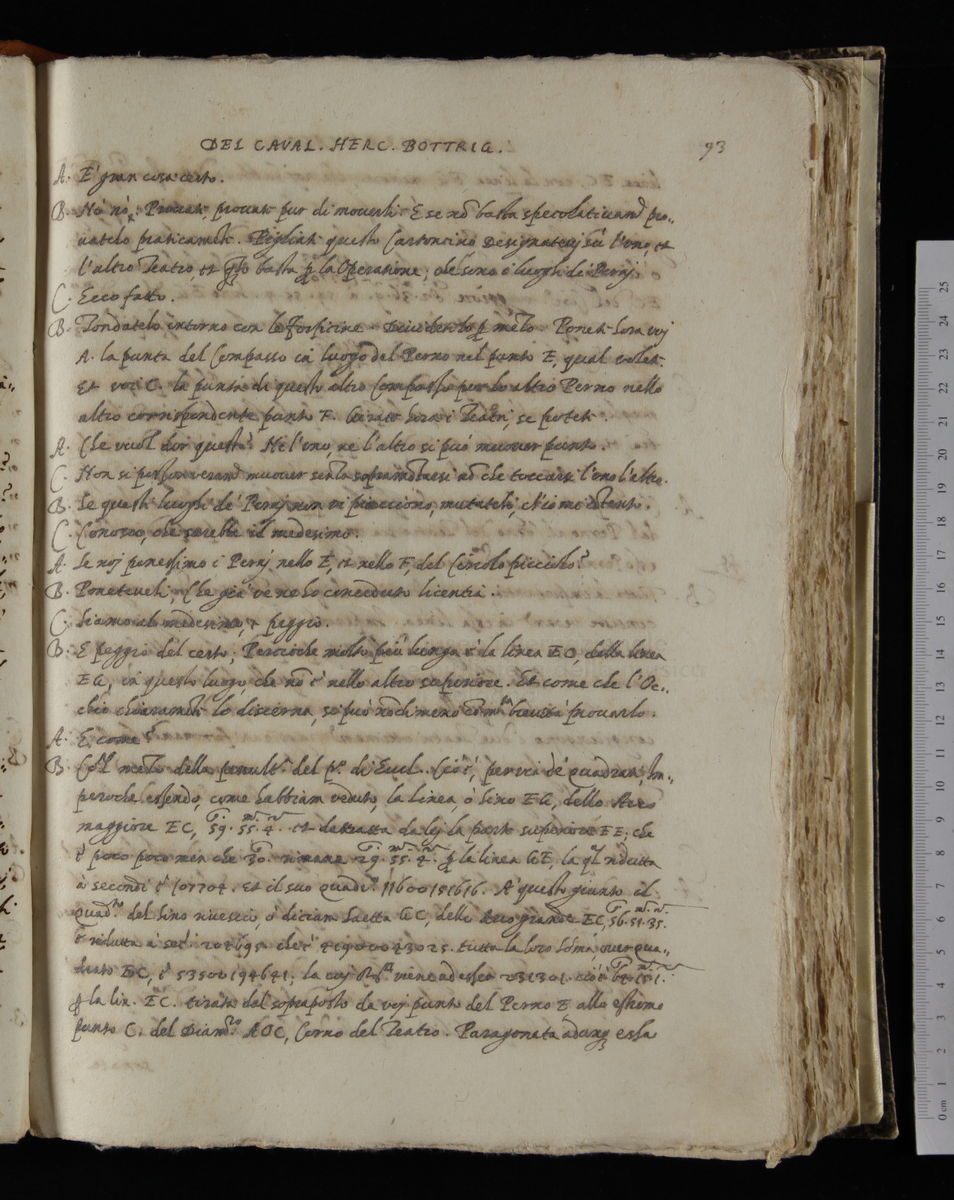 DEL CAVAL. HERC. BOTTRIG. 93
A. E' gran cosa certo.
B. Nò nò. Provati, provati pur di moverli. E se nō basta specolativamte pro-
vatelo praticamte. Pigliati questo Cartoncino Designatevi sù l'uno, et
l'altro Teatro, et qsto basta p la Operatione, che sono i luoghi dè Pernj.
C. Ecco fatto.
B. Tondatelo intorno con le Forficine p mezo. Poneti hora voj
A. la punta del Compasso in luogo del Perno nel punto E, qual voleti.
Et voi C. la punta di questo altro Compasso per lo altro Perno nello
altro corrispondente punto F. Girate hora i Teatri, se poteti.
A. Che vuol dir questo? Nè l'uno, nè l'altro si può muover punto.
C. Non si muover nō che toccarsi l'uno l'altro.
B. Se questi luoghi dè Pernj non vi piacciono, mutateli, ch'io mi
C. Conosco, che sarebbe il medesimo.
A. Se noj ponessimo i Pernj nello E, et nello F, del Circolo picciolo?
B. Poneteveli; Che già ve ne ho conceduto licentia.
C. Siamo al medesimo, e peggio.
B. E peggio del certo; Percioche molto più lunga è la linea EC, della linea
EG, in questo luogo, che nō è nello altro superiore. Et come che l'Oc-
chio chiaramte lo discerna, si può nōdimeno cō mta brevità provarlo.
A. E come?
B. Col mezo della penulta del po di Eucl. Cioè, per via de' quadrati, Im-
peroche essendo, come habbiam veduto, la Linea, ò Sino EG, dello Arco
maggiore EC, 59. 55. 4. et detratta da lej la parte superiore FE; che
è poco poco men che 30. rimane 29. 55. 4. p la linea GE, la ql ridutta
à secondi è 107704. Et il suo quadrto 11600151616. A questo giunto il
quadto del Sino riverscio, ò diciam Saetta GC, dello Arco grande EC, 56. 51. 35.
è ridutta à secdi 204695 che è 41900043025. tutta la loro Soma, over qua-
drato EC, è 53500194641. la cuj mene ad essere 231301. cioè 64. 15. 1.
p la lin. EC. tirata dal sopraposto da voj punto del Perno E allo estremo
punto C. del Diamro AOC, Corno del Teatro. Paragonata adunq essa